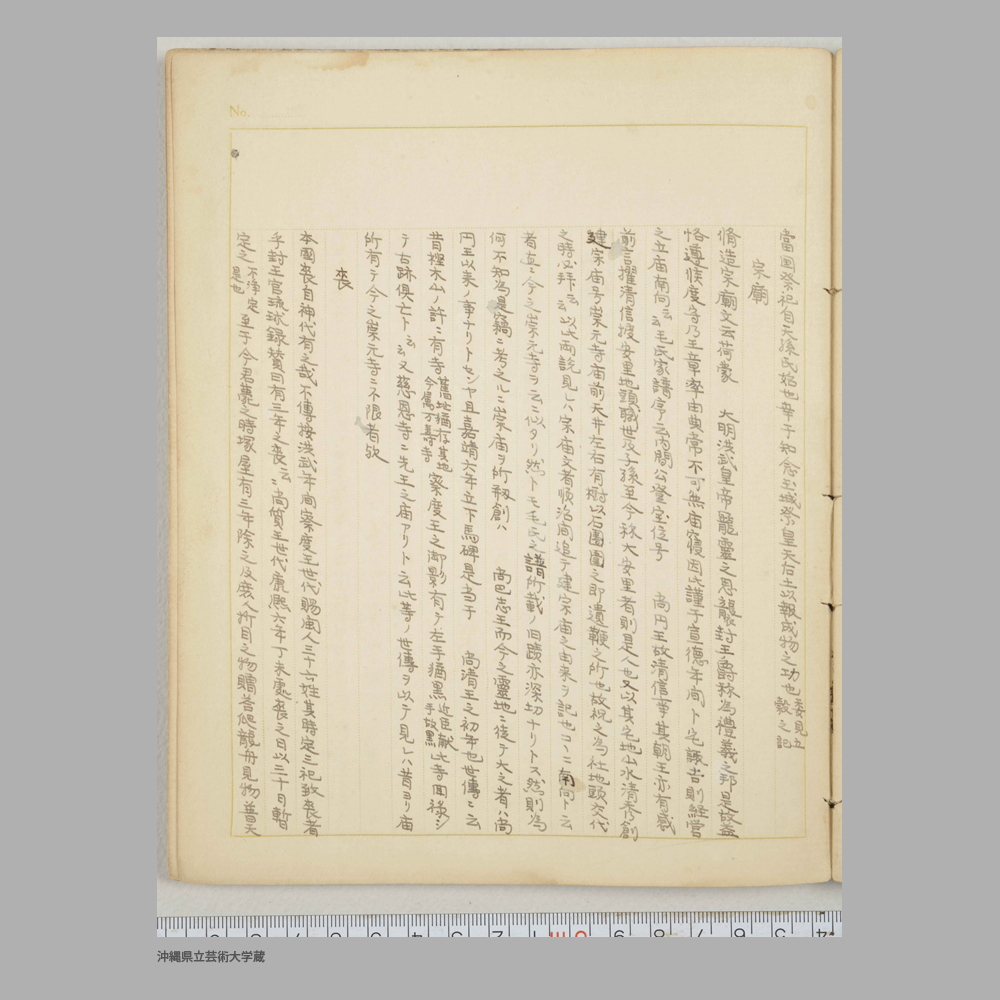 No.
當国祭祀自天孫氏始也幸于知念玉城祭皇天后土以報成物之功也委見五穀之記
宗廟
脩造宗廟文云荷蒙 大明洪武皇帝寵靈之恩襲封王爵称為禮義之邦是故益
恪遵候度乃王章率由典常不可無庙寝因此謹于宣德年間卜宅諏吉則經営
之立庙南向云云毛氏家譜序云内間公堂室位号 尚円王故清信等其朝王亦有感
前言擢清信授安里地頭職世及子孫至今称大安里者則是人也又以其宅地山水清秀創
建宗庙号崇元寺庙前天井左右有樹以石團圍之即遺鞭之所也故祝之為社地頭交代
之時必拜云云以此両説見レハ宗庙文者順治間追テ建宗庙之由来ヲ記也コヽニ南向ト云
者直ニ今之崇元寺ヲ云ニ似タリ然トモ毛氏之譜所載ノ旧蹟亦深切ナリトス然則為
何不知為是竊ニ考之ルニ崇庙ヲ所初創ハ 尚巴志王而今之靈地ニ後テ大之者ハ尚
円王以来ノ事ナリトセンヤ且嘉靖六年立下馬碑是当于 尚清王之初年也世傳ニ云
昔樫木山ノ許ニ有寺舊址猶存其地今属万善寺察度王之御影有テ左手猶黒近臣献手故黒此寺囬祿シ
テ古跡倶亡ト云云又慈恩寺ニ先王之庙アリト云此等ノ世傳ヲ以テ見レハ昔ヨリ庙
所有テ今之崇元寺ニ不限者欤
喪
本国喪自神代有之哉不傳按洪武年間察度王世代賜閩人三十六姓其時定三祀致喪者
乎封王官琉球録賛曰有三年之喪云云尚質王世代康熙六年丁未憂喪之日以三十日暫
定之不浄定是也至于今君薨之時塚屋有三年除之及喪人所目之物贈答爬龍舟見物普天
沖縄県立芸術大学蔵